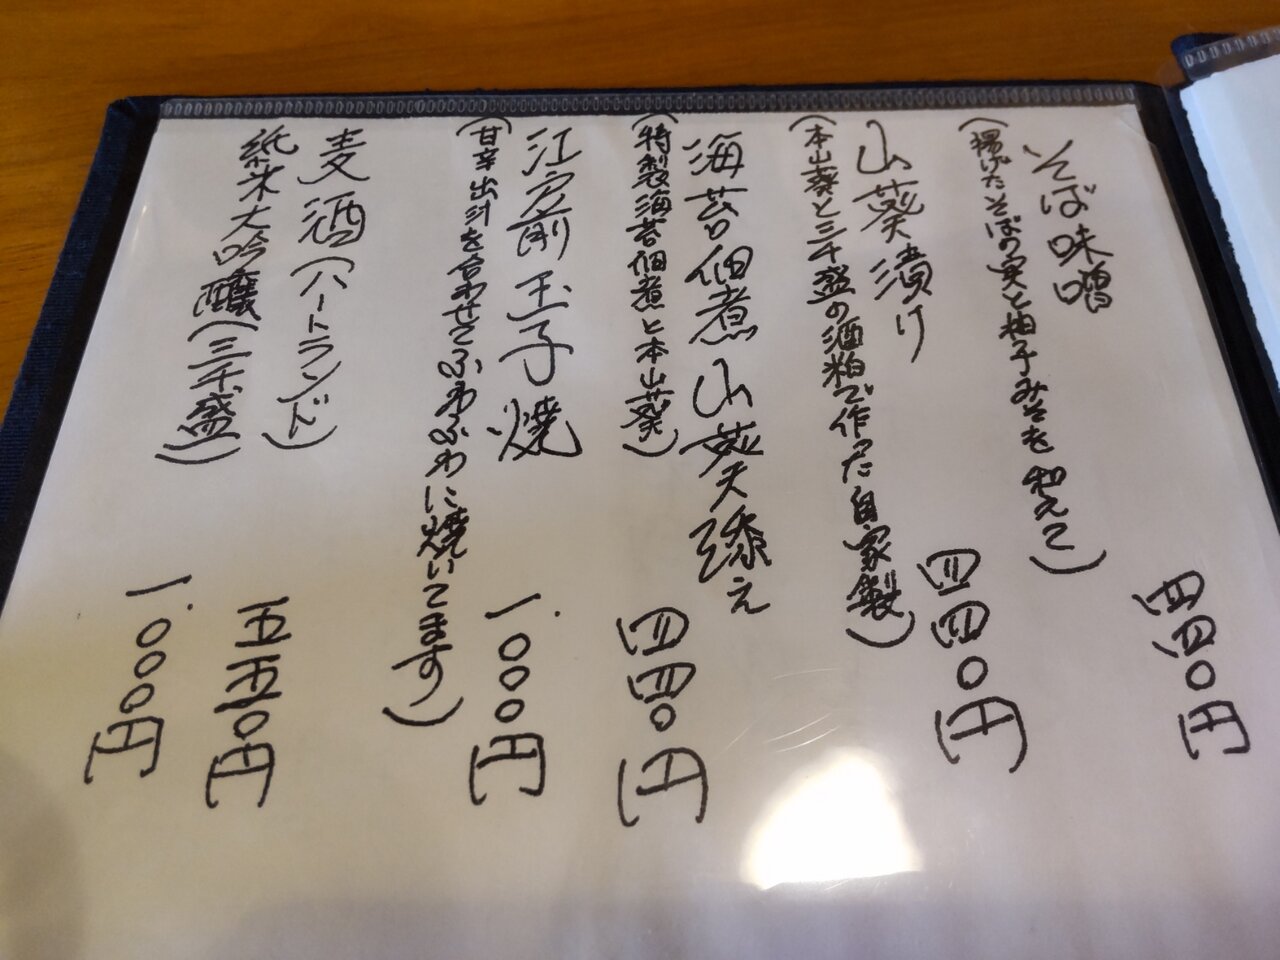 そば味噌 四四〇円
(揚げたそばの実と柚子みそを和えて)
山葵漬け 四四〇円
(本山葵と三千盛の酒粕で作った自家製)
海苔佃煮山葵添え 四四〇円
(特製海苔佃煮と本山葵)
江戸前玉子焼 一.〇〇〇円
(甘辛出汁を合わせてふわふわに焼いてます)
麦酒(ハートランド) 五五〇円
純米大吟醸(三千盛) 一.〇〇〇円